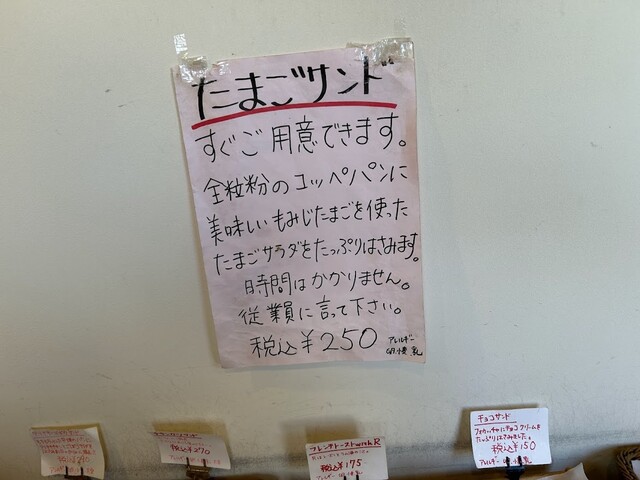 たまごサンド
すぐご用意できます。
全粒粉のコッペパンに
美味しいもみじたまごを使った
たまごサラダをたっぷりはさみます。
時間はかかりません。
従業員に言って下さい。
税込¥250
アレルギー
卵.小麦.乳
税込¥210
税込¥270
フレンチトーストworkR
税込¥175
チョコサンド
フォカッチャにチョコクリームを
たっぷりはさみました。
税込¥150